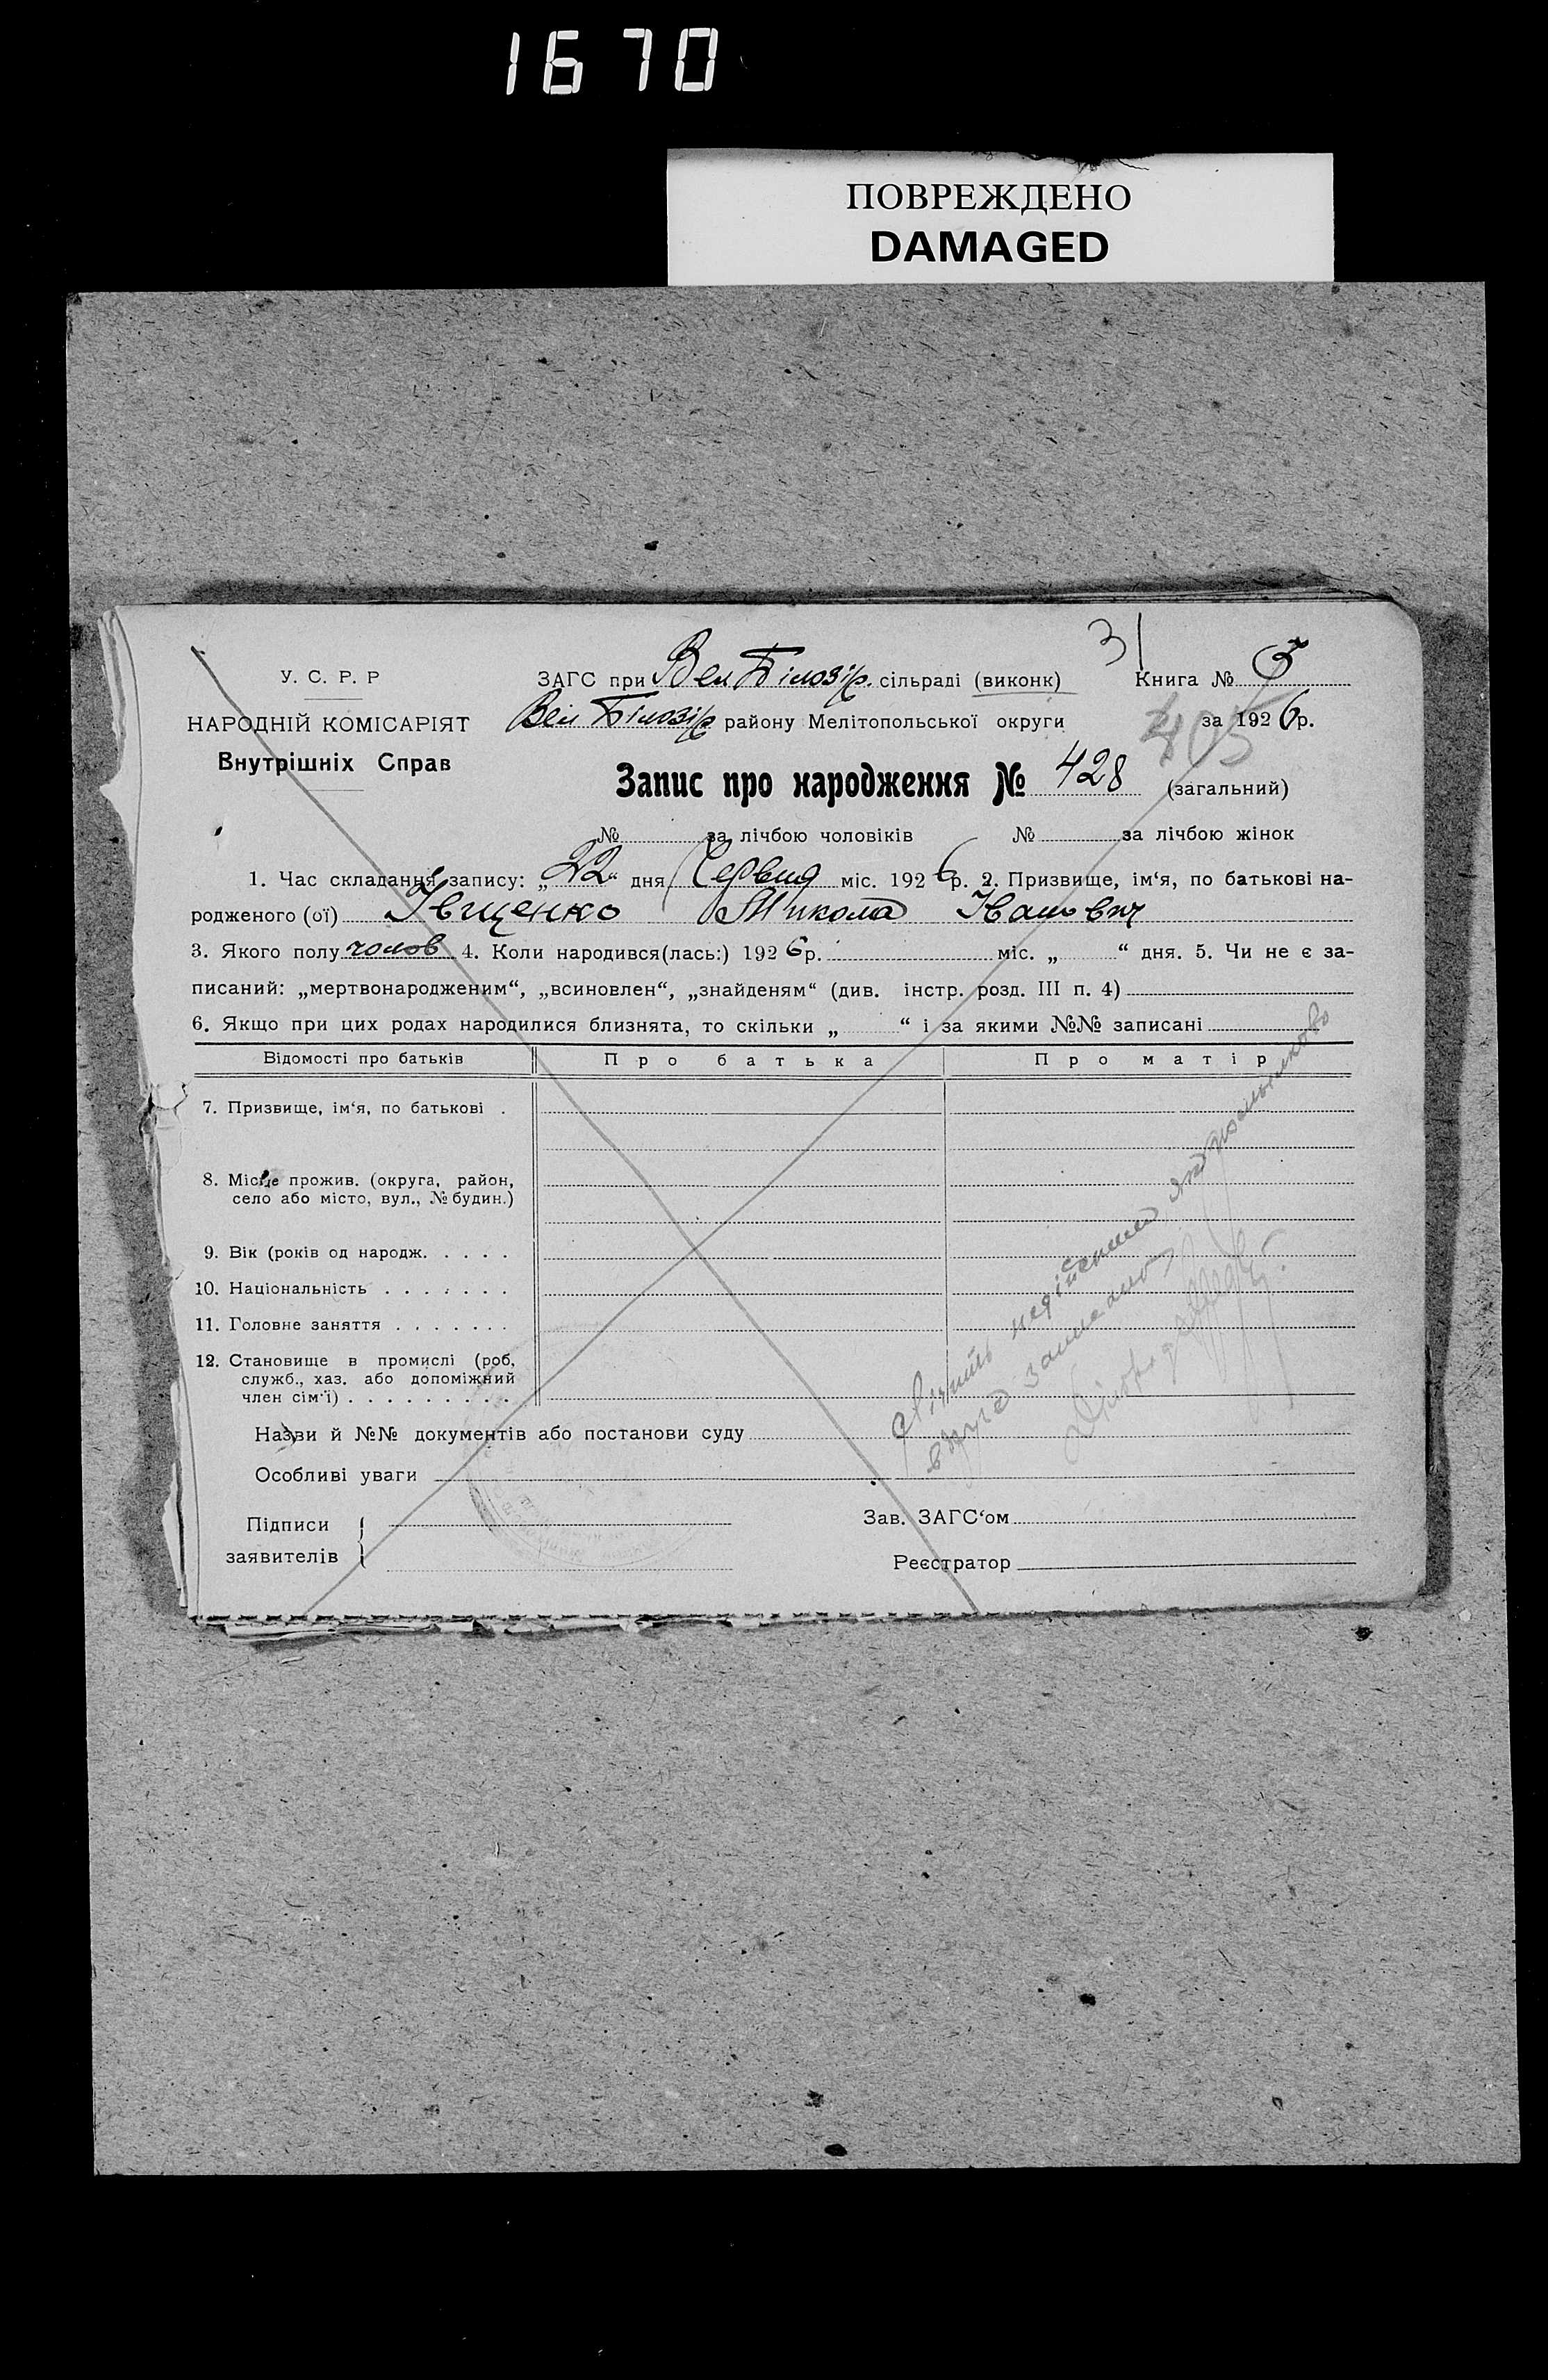 1670
ПОВРЕЖДЕНО
DAMAGED
31
У. С. Р. Р
ЗАГС при Вел Білозір. сільраді (виконк)
Книга № 5
НАРОДНІЙ КОМІСАРІЯТ
Вел Білозір району Мелітопольської округи
за 1926р.
405
Внутрішніх Справ
Запис про народження № 428 (загальний)
№ за лічбою чоловіків № за лічбою жінок
1. Час складання запису: „22“ дня Червня міс. 1926р. 2. Призвище, ім‘я, по батькові на-
родженого (ої) Івщенко Микола Іванович
3. Якого полу чолов 4. Коли народився(лась:) 1926р. міс. „ “ дня. 5. Чи не є за-
писаний: „мертвонародженим“, „всиновлен“, „знайденям“ (див. інстр. розд. III п. 4)
6. Якщо при цих родах народилися близнята, то скільки „ “ і за якими №№ записані
Відомості про батьків Про батька Про матір
7. Призвище, ім‘я, по батькові .
8. Місце прожив. (округа, район,
село або місто, вул., № будин.)
9. Вік (років од народж. . . . .
10. Національність . . . . . . .
11. Головне заняття . . . . . . .
12. Становище в промислі (роб,
служб., хаз. або допоміжний
член сім‘ї) . . . . . . . . .
Лічить недійсним як помилково
вдруге записано
Назви й №№ документів або постанови суду
Особливі уваги
Підписи
заявителів
Зав. ЗАГС‘ом
Реєстратор